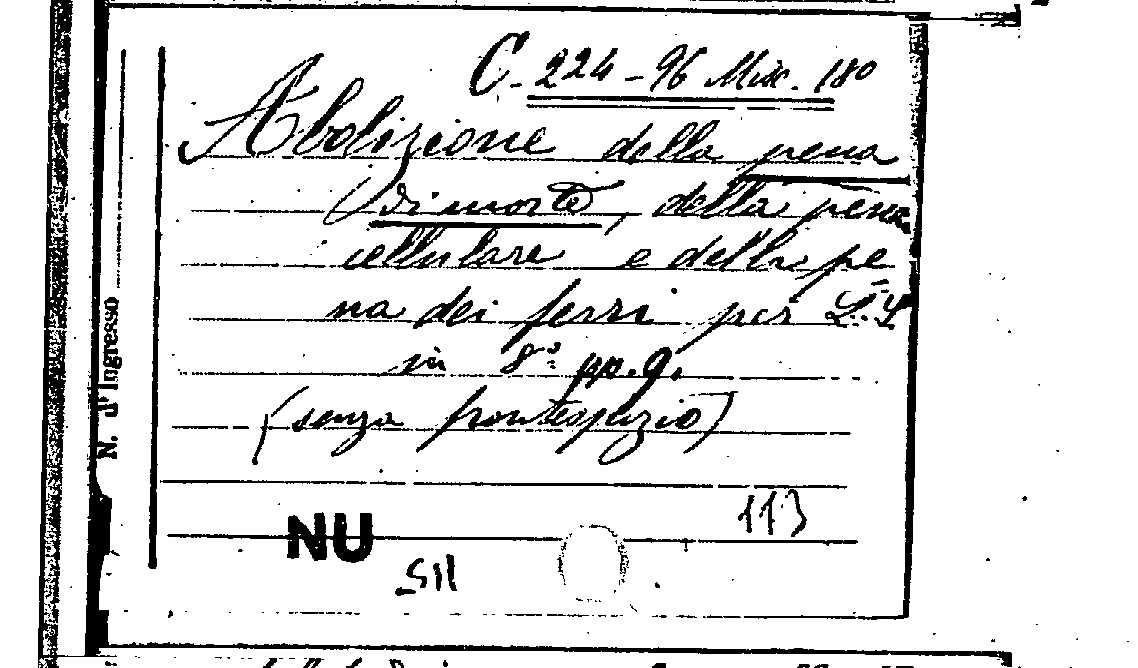 C. 224-96 Misc. 180
Abolizione della pena
di morte, della pena
cellulare e della pe
na dei ferri per L.S
in 8º pp. 9.
(senza frontespizio)
N. d'Ingresso
113
NU